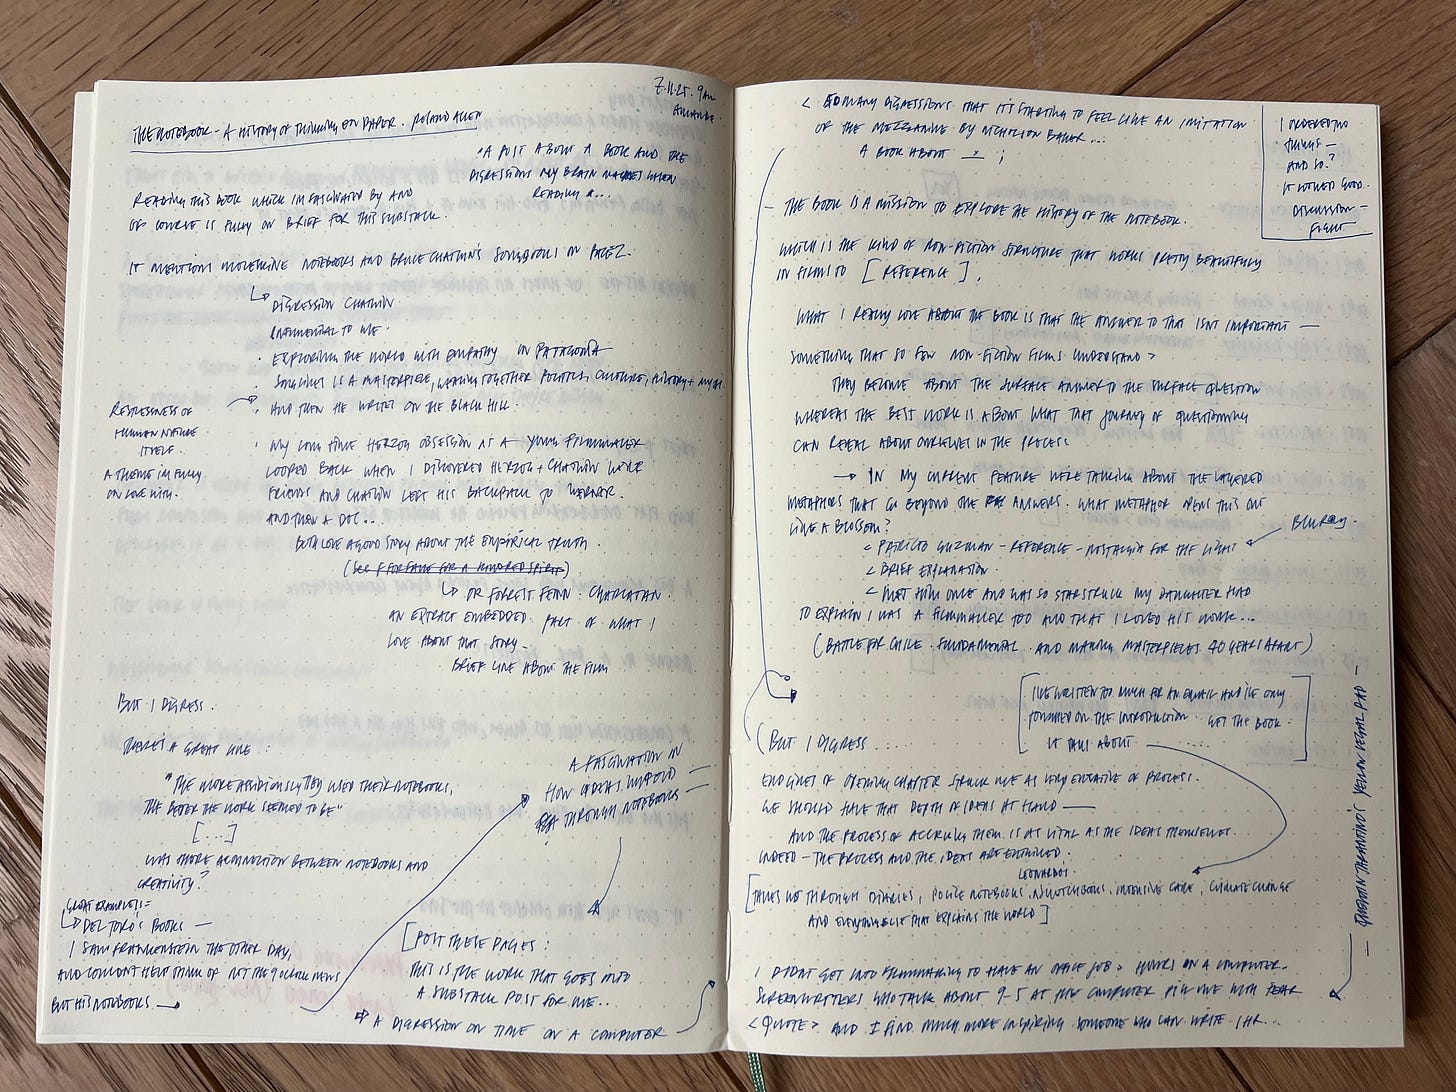 7.11.25. 9am
THE NOTEBOOK - A HISTORY OF THINKING ON PAPER. ROLAND ALLEN
• A POST ABOUT A BOOK AND THE
DIGRESSIONS MY BRAIN MAKES WHEN
READING IT...
READING THIS BOOK WHICH I'M FASCINATED BY AND
OF COURSE IS FULLY ON BRIEF FOR THIS SUBSTACK.
IT MENTIONS MOLESKINE NOTEBOOKS AND BRUCE CHATWIN'S SONGLINES ON PAGE 2.
DIGRESSION CHATWIN
FUNDAMENTAL TO ME.
• EXPLORING THE WORLD WITH EMPATHY IN PATAGONIA
• SONGLINES IS A MASTERPIECE, WEAVING TOGETHER POLITICS, CULTURE, HISTORY +
• AND THEN HE WRITES ON THE BLACK HILL.
RESTLESSNESS OF
HUMAN NATURE
ITSELF.
A THEME I'M FULLY
IN LOVE WITH.
• MY LONG TIME HERZOG OBSESSION AS A YOUNG FILMMAKER
LOOPED BACK WHEN I DISCOVERED HERZOG + CHATWIN WERE
FRIENDS AND CHATWIN LEFT HIS BACKPACK TO WERNER.
AND THEN A DOC...
BOTH LOVE A GOOD STORY ABOVE THE EMPIRICAL TRUTH.
(SEE F FOR FAKE FOR A KINDRED SPIRIT)
OR FORREST FENN. CHARLATAN.
AN EXTRACT EMBEDDED. PART OF WHAT I
LOVE ABOUT THAT STORY...
BRIEF LINE ABOUT THE FILM
BUT I DIGRESS.
THERE'S A GREAT LINE:
"THE MORE ASSIDUOUSLY THEY USED THEIR NOTEBOOKS,
THE BETTER THE WORK SEEMED TO BE"
[...]
WAS THERE A CONNECTION BETWEEN NOTEBOOKS AND
CREATIVITY?
GREAT EXAMPLES =
DEL TORO'S BOOKS —
I SAW FRANKENSTEIN THE OTHER DAY,
AND COULDN'T HELP THINK OF NOT THE 9 O'CLOCK NEWS
BUT HIS NOTEBOOKS
A FASCINATION IN
HOW IDEAS UNFOLD —
THROUGH NOTEBOOKS —
[POST THESE PAGES:
THIS IS THE WORK THAT GOES INTO
A SUBSTACK POST FOR ME...
A DIGRESSION ON TIME ON A COMPUTER
< SO MANY DIGRESSIONS THAT IT'S STARTING TO FEEL LIKE AN IMITATION
OF THE MEZZANINE BY NICHOLSON BAKER...
A BOOK ABOUT
I ORDERED TWO
THINGS —
AND SO?
IT LOOKED GOOD.
DISCUSSION —
– THE BOOK IS A MISSION TO EXPLORE THE HISTORY OF THE NOTEBOOK.
WHICH IS THE KIND OF NON-FICTION STRUCTURE THAT WORKS PRETTY BEAUTIFULLY
IN FILMS TO [REFERENCE],
WHAT I REALLY LOVE ABOUT THE BOOK IS THAT THE ANSWER TO THAT ISN'T IMPORTANT —
SOMETHING THAT SO FEW NON-FICTION FILMS UNDERSTAND >
THEY BECOME ABOUT THE SURFACE ANSWER TO THE SURFACE QUESTION
WHEREAS THE BEST WORK IS ABOUT WHAT THAT JOURNEY OF QUESTIONING
CAN REVEAL ABOUT OURSELVES IN THE PROCESS
→ IN MY CURRENT FEATURE WE'RE TALKING ABOUT THE LAYERED
METAPHORS THAT GO BEYOND THE ANSWERS. WHAT METAPHOR OPENS THIS OUT
LIKE A BLOSSOM?
< PATRICIO GUZMAN - REFERENCE - NOSTALGIA FOR THE LIGHT
BLURAY.
< BRIEF EXPLANATION.
< MET HIM ONCE AND WAS SO STARSTRUCK MY DAUGHTER HAD
TO EXPLAIN I WAS A FILMMAKER TOO AND THAT I LOVED HIS WORK...
(BATTLE FOR CHILE. FUNDAMENTAL. AND MAKING MASTERPIECES 40 YEARS APART)
[I'VE WRITTEN TOO MUCH FOR AN EMAIL AND I'VE ONLY
TOUCHED ON THE INTRODUCTION. GET THE BOOK.
IT TALKS ABOUT]
(BUT I DIGRESS.....
END LINES OF OPENING CHAPTER STRUCK ME AS VERY EVOCATIVE OF PROCESS.
WE SHOULD HAVE THAT DEPTH OF IDEAS AT HAND —
AND THE PROCESS OF ACCRUING THEM IS AS VITAL AS THE IDEAS THEMSELVES.
INDEED – THE PROCESS AND THE IDEAS ARE ENTWINED.
LEONARDO'S
[TAKES US THROUGH DIARIES, POLICE NOTEBOOKS, SKETCHBOOKS, INTENSIVE CARE, CLIMATE CHANGE
AND EVERYTHING ELSE THAT EXPLAINS THE WORLD]
I DIDN'T GET INTO FILMMAKING TO HAVE AN OFFICE JOB > HOURS ON A COMPUTER.
SCREENWRITERS WHO TALK ABOUT 9-5 AT THE COMPUTER FILL ME WITH FEAR
<QUOTE> AND I FIND MUCH MORE INSPIRING SOMEONE WHO CAN WRITE 1HR...
— QUENTIN TARANTINO'S YELLOW LEGAL PAD —